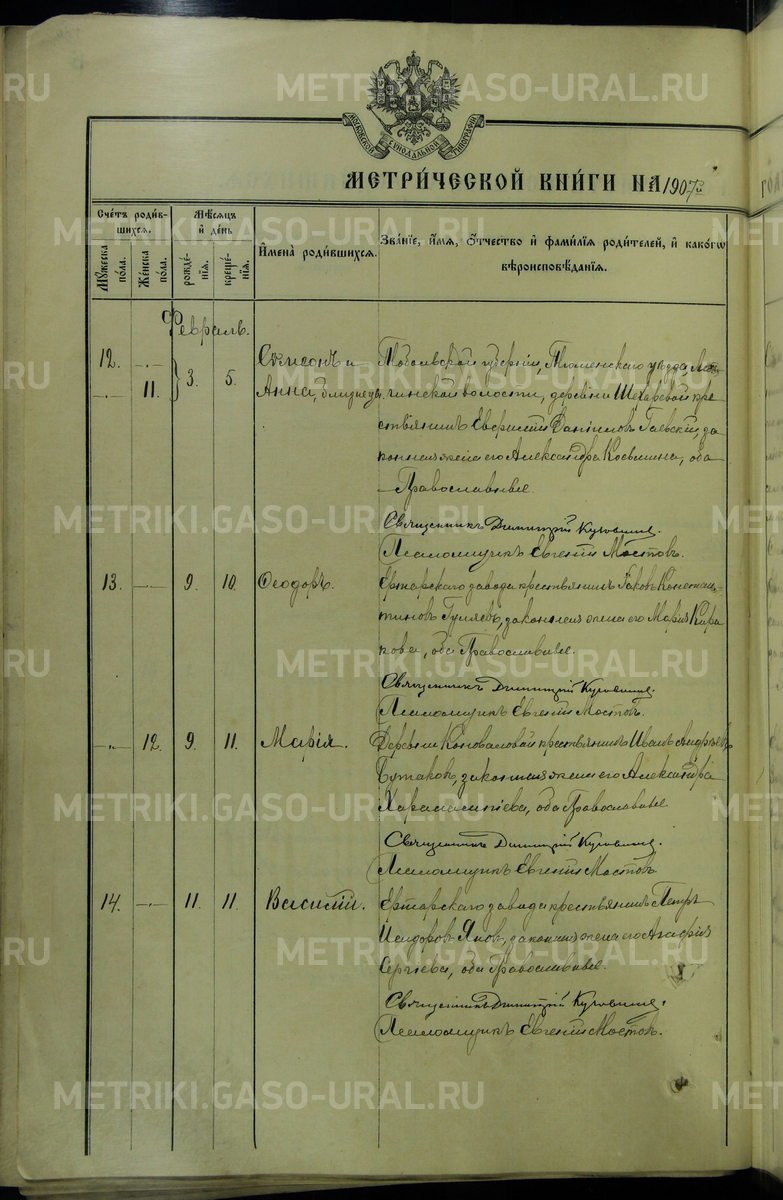 МОСКОВСКОЙ СѴНОДАЛЬНОЙ ТИПОГРАФІИ
МЕТРИ́ЧЕСКОЙ КНИ́ГИ НА 1907й
ГОДЪ
Сче́тъ роди́в-
шихся.
Мѣ́сяцъ
и де́нь
Му́жеска по́ла.
Же́нска по́ла.
рожде́-
нія.
креще́-
нія.
Имена̀ роди́вшихся.
Зва́ніе, и́мя, о́тчество и фами́лія роди́телей, и како́гѡ
вѣроисповѣ́данія.
Февраль.
12. —„— 3. 5. Сѵмеонъ и Тобольской губерніи, Тюменскаго уѣзда,
—„— 11. Анна, близнецы. чинской волости, деревни кре
стьянинъ Данииловъ Гаевскій, за
конная жена его Александра Косьмина, оба
Православные.
Священникъ Димитрій
Псаломщикъ Евгеній Мостовъ.
13. —„— 9. 10. Ѳеодоръ. Ертарскаго завода крестьянинъ Іаковъ Констан-
тиновъ Гуляевъ, законная жена его Марія Кира
кова, оба Православные.
Священникъ Димитрій
Псаломщикъ Евгеній Мостовъ.
—„— 12. 9. 11. Марія. Деревни Коноваловой крестьянинъ Иванъ Андреевъ
Бутаковъ, законная жена его Александра
Харалампіева, оба Православные.
Священникъ Димитрій
Псаломщикъ Евгеній Мостовъ.
14. —„— 11. 11. Василій. Ертарскаго завода крестьянинъ Петръ
Исидоровъ Яновъ, законная жена его Агафія
Сергіева, оба Православные.
Священникъ Димитрій
Псаломщикъ Евгеній Мостовъ.
METRIKI.GASO-URAL.RU